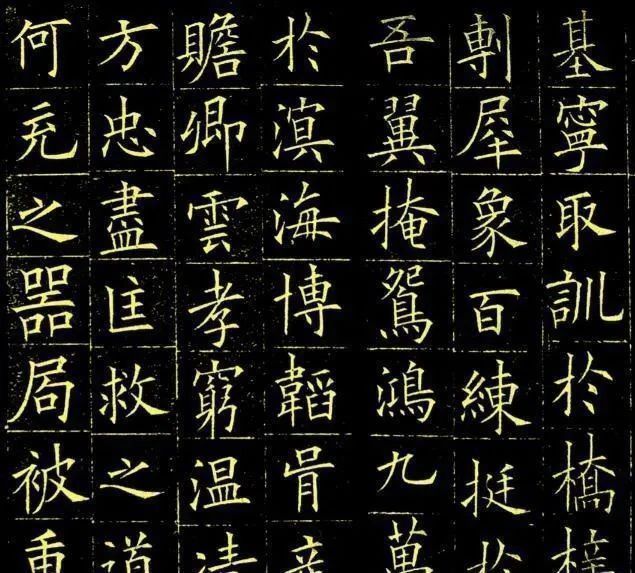 基寧取訓於橋梓
剸犀象百練挺於
吾翼掩鴛鴻九萬
於滇海博韜
贍卿雲孝窮温清
方忠盡匡救之道
何充之器局被重